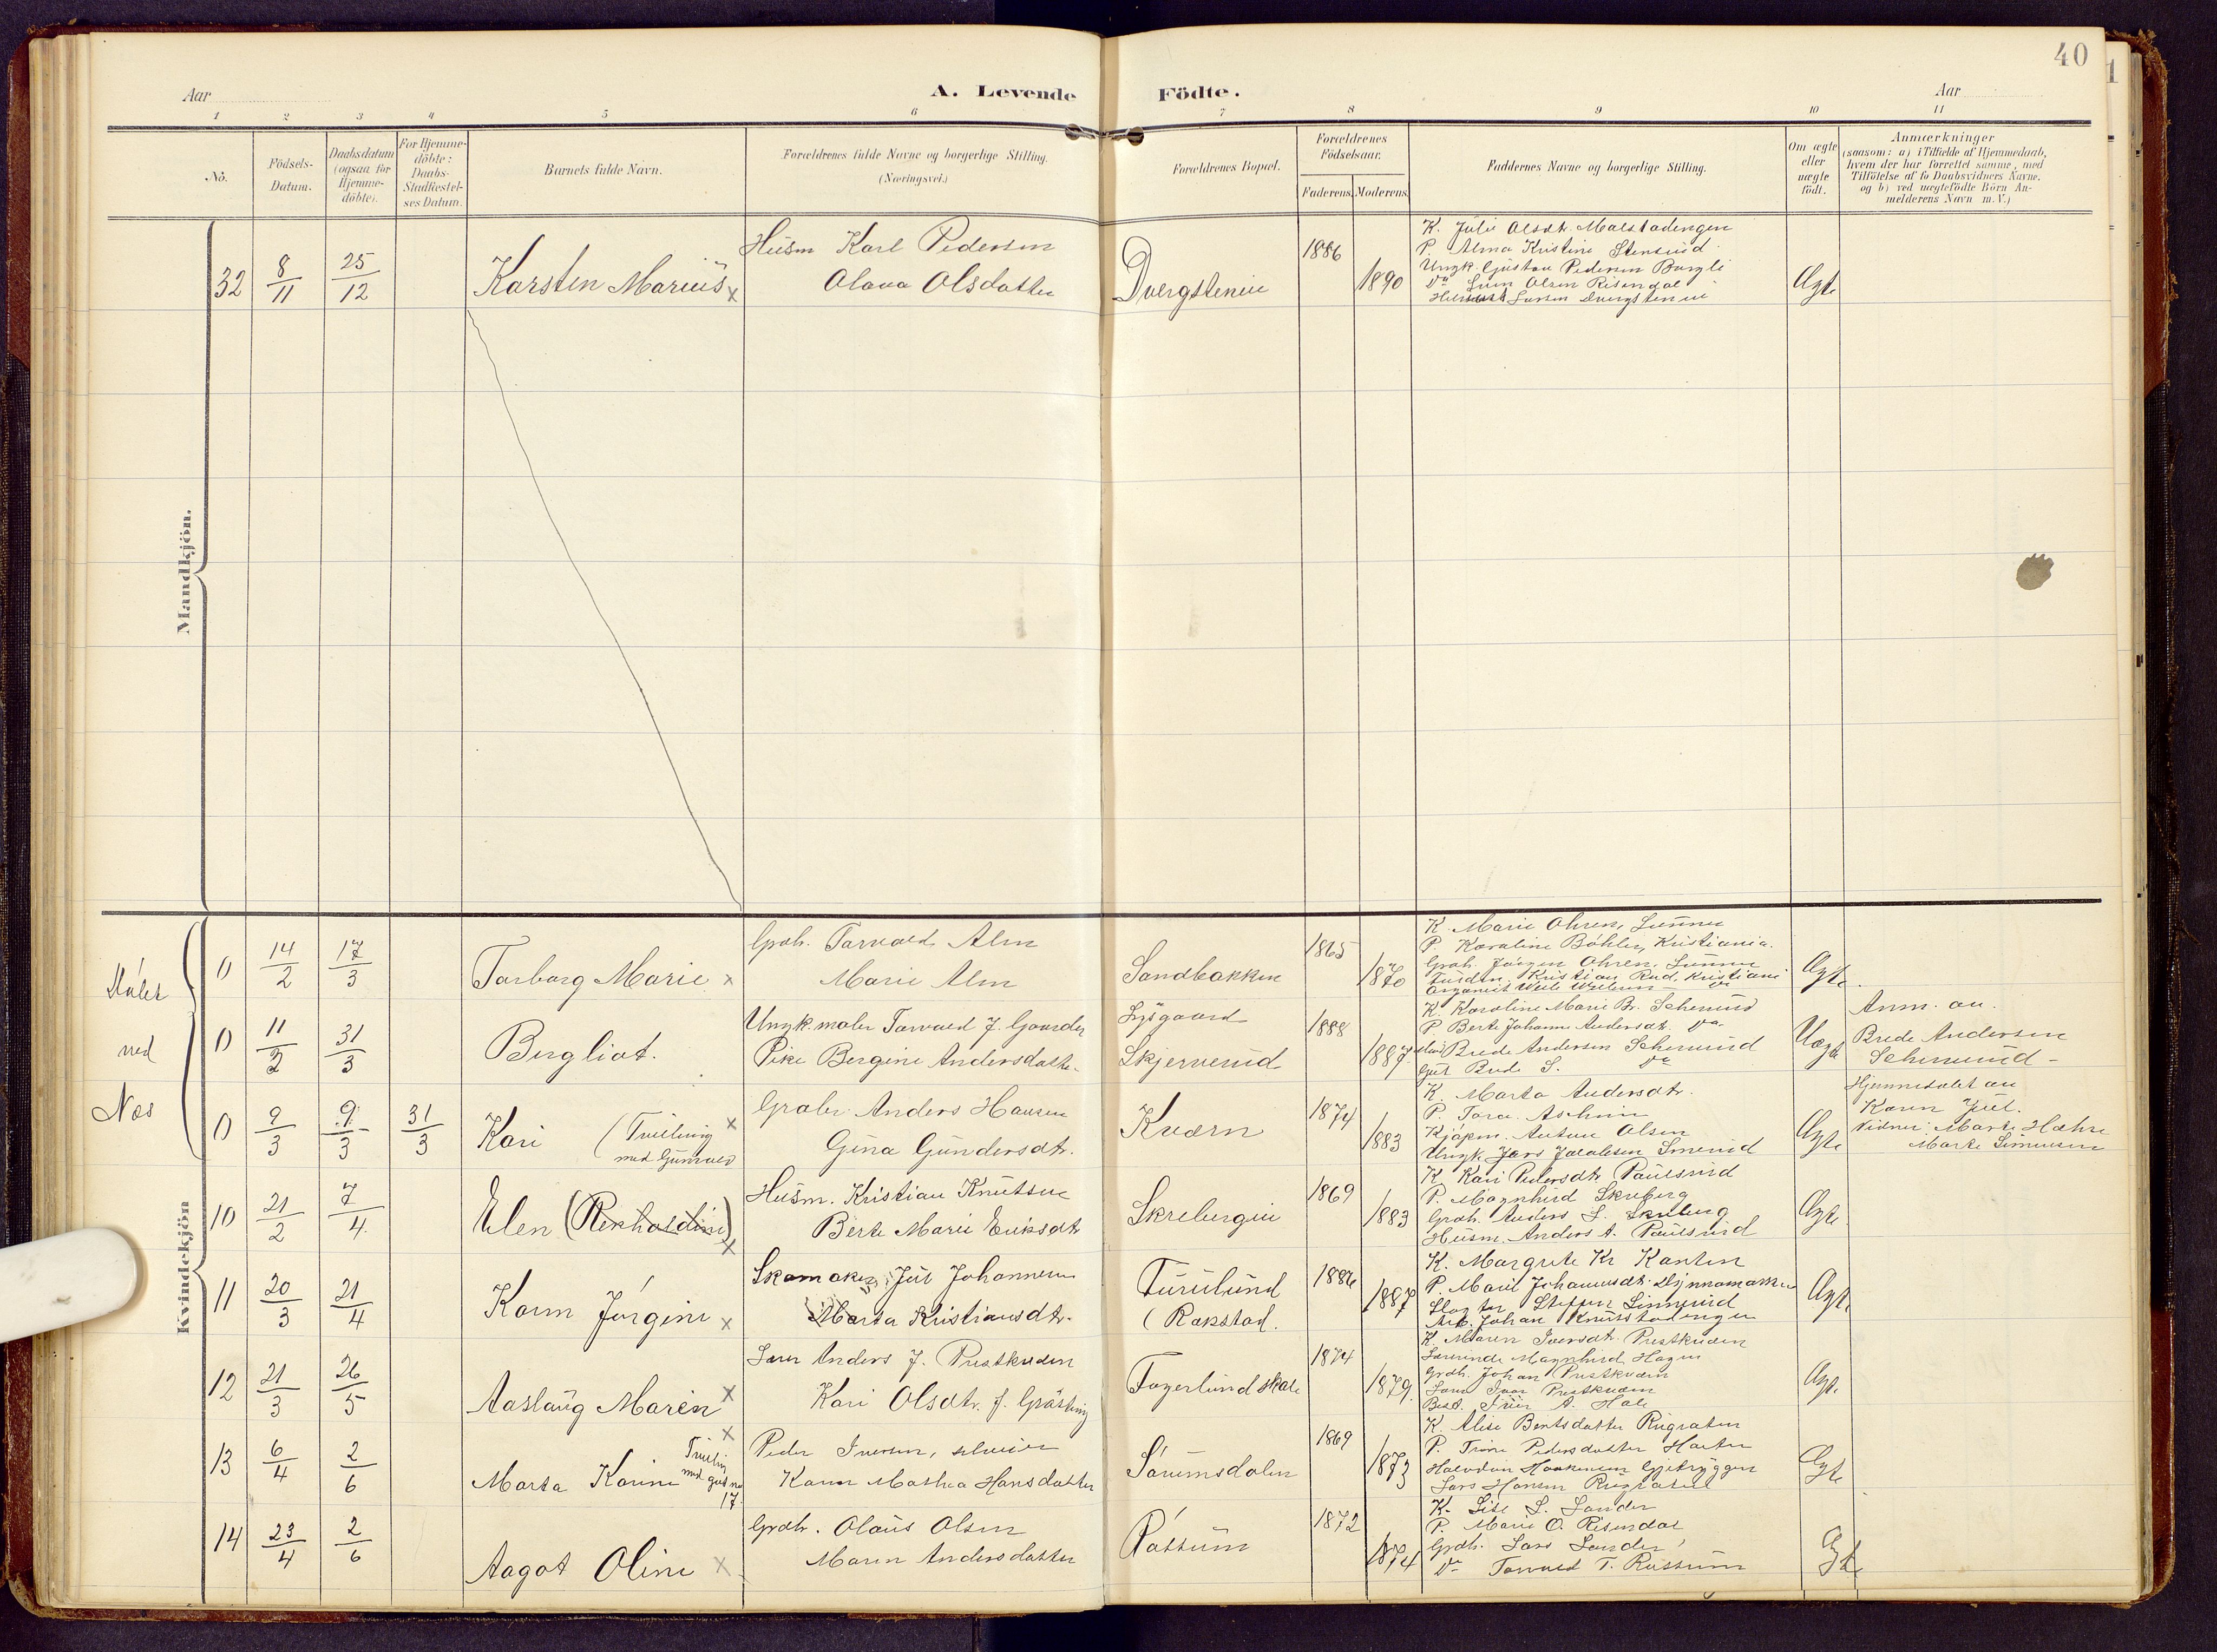 40
Aar
A. Levende Födte.
Aar
1 2 3 4 5 6 7 8 9 10 11
No.
Födsels-Datum.
Daabsdatum (ogsaa for Hjemmedöbte).
For Hjemmedöbte: Daabs-Stadfæstelses Datum.
Barnets fulde Navn.
Forældrenes fulde Navne og borgerlige Stilling.
(Næringsvei.)
Forældrenes Bopæl.
Forældrenes Födselsaar.
Faderens. Moderens.
Faddernes Navne og borgerlige Stilling.
Om ægte eller uægte födt.
Anmærkninger
(saasom: a) i Tilfælde af Hjemmedaab,
hvem der har forrettet samme, med
Tilföielse af to Daabsvidners Navne.
og b) ved uægtefödte Börn An-
melderens Navn m. V.)
Mandkjön.
32 8/11 25/12 Karsten Marius x
Husm Karl Pedersen
Olava Olsdatter
Dvergsteneie
1886
1890
K. Julie Olsdt. Malstadengen
P. Alma Kristine Stensrud
Ungk. Gustav Pedersen Burgli
Do Olsen Risendal
Larsen Dvergsteneie
Ægte
ned
Næs
0 14/2 17/3 Torborg Marie x
Grdbr. Torvald Alm
Marie Alm
Sandbakken
1865
1870
K. Marie Ohren,
P. Karoline Böhler, Kristiania.
Grdb. Jörgen Ohren,
Kristian Rud, Kristiania
Organist
Ægte.
0 11/2 31/3 Bergliot.
Ungk. maler Torvald J. Gaarder
Pike Bergine Andersdatter
Lysgaard
Skjerverud
1888
1887
K. Karoline Marie Br. Sehmrud
P. Berte Johanne Andersdt. Do
Brede Andersen Sehmrud
Gut Brede S. Do
Uægte
Anm. av.
Brede Andersen
Sehmrud -
0 9/3 9/3 31/3 Kari (Tvilling x
med Gunvald
Grdbr. Anders Hansen
Gina Gundersdt.
Kværn
1874
1883
K. Marta Andersdt.
P. Tora Aschim
Kjöpm. Anton Olsen
Ungk. Lars Jacobsen Smerud
Ægte
Hjemmedöbt av
Karen Juel.
Vidner: Marte Hæhre
Marte Simensen
Kvindekjön
10 21/2 7/4 Elen (Reinholdine) x
Husm. Kristian Knutsen
Berte Marie Eriksdt.
Skrebergeie
1869
1883
K. Kari Pedersdt. Paulsrud
P. Magnhild Skreberg
Grdb. Anders S. Skreberg
Husm. Anders A. Paulsrud
Ægte.
11 20/3 21/4 Karen Jörgine x
Skomaker Jul Johannesen
Marta Kristiansdt.
Furulund
(Rakstad.
1886
1887
K. Margrete Kr. Kanten
P. Marie Johannesdt.
Steffen Linnerud
Arb. Johan Knutstadengen
Ægte.
12 21/3 26/5 Aaslaug Maren x
Lærer Anders J. Prestkværn
Kari Olsdtr. f. Gråsting
Fagerlund skole
1874
1879.
K. Maren Iversdt. Prestkværn
Lærerinde Magnhild Hagen
Grdb. Johan Prestkværn
Lærer Ivar Prestkværn
Best. A. Hole
Ægte.
13 6/4 2/6 Marta Karine Tvilling x
med gut no
17.
Peder Iversen,
Karen Mathea Hansdatter
Sörumsdalen
1869
1873
K. Elise Berntsdatter Rugraten
P. Trine Pedersdatter
Halvdan Haakensen Gjetryggen
Lars Hansen
Ægte
14 23/4 2/6 Aagot Oline x
Grdb. Olaus Olsen
Maren Andersdatter
Råssum
1872
1874
K. Lise L. Sander
P. Marie O. Risendal
Grdb. Lars Sander
Do Torvald T. Råssum
Ægte